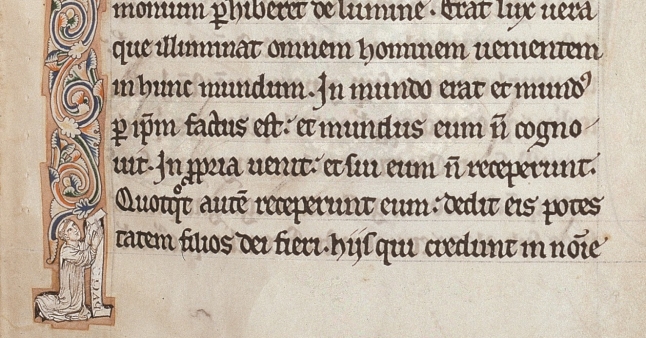 monium ꝑhiberet de lumine. Erat lux uera
que illuminat omnem hominem uenientem
in hunc mundum. In mundo erat et mundꝰ
ꝑ ip̄m factus est: et mundus eum n̄ cogno
uit. In ꝓpria uenit: et sui eum n̄ receperunt.
Quotq̊t autē receperunt eum: dedit eis potes
tatem filios dei fieri. hijs qui credunt in noīe